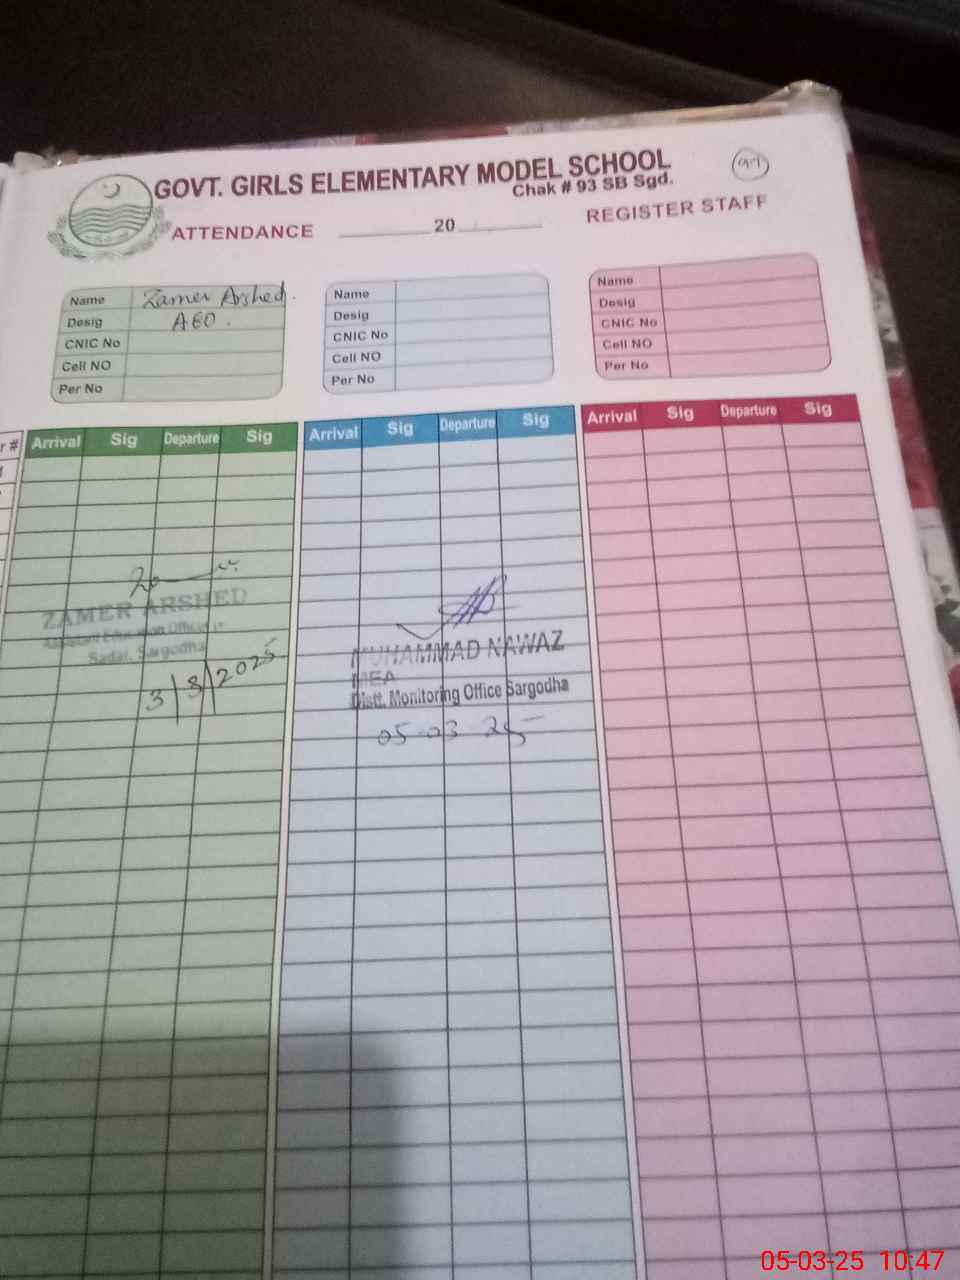 GOVT. GIRLS ELEMENTARY MODEL SCHOOL
Chak # 93 SB Sgd.
ATTENDANCE ________ 20 ________ REGISTER STAFF
Name Zamer Arshed.
Desig AEO.
CNIC No
Cell NO
Per No
Name
Desig
CNIC No
Cell NO
Per No
Name
Desig
CNIC No
Cell NO
Per No
r # Arrival Sig Departure Sig Arrival Sig Departure Sig Arrival Sig Departure Sig
ZAMER ARSHED
Assistant Education Officer
Sadar, Sargodha
3/3/2025
MUHAMMAD NAWAZ
MEA
Distt. Monitoring Office Sargodha
05-03-25
05-03-25 10:47